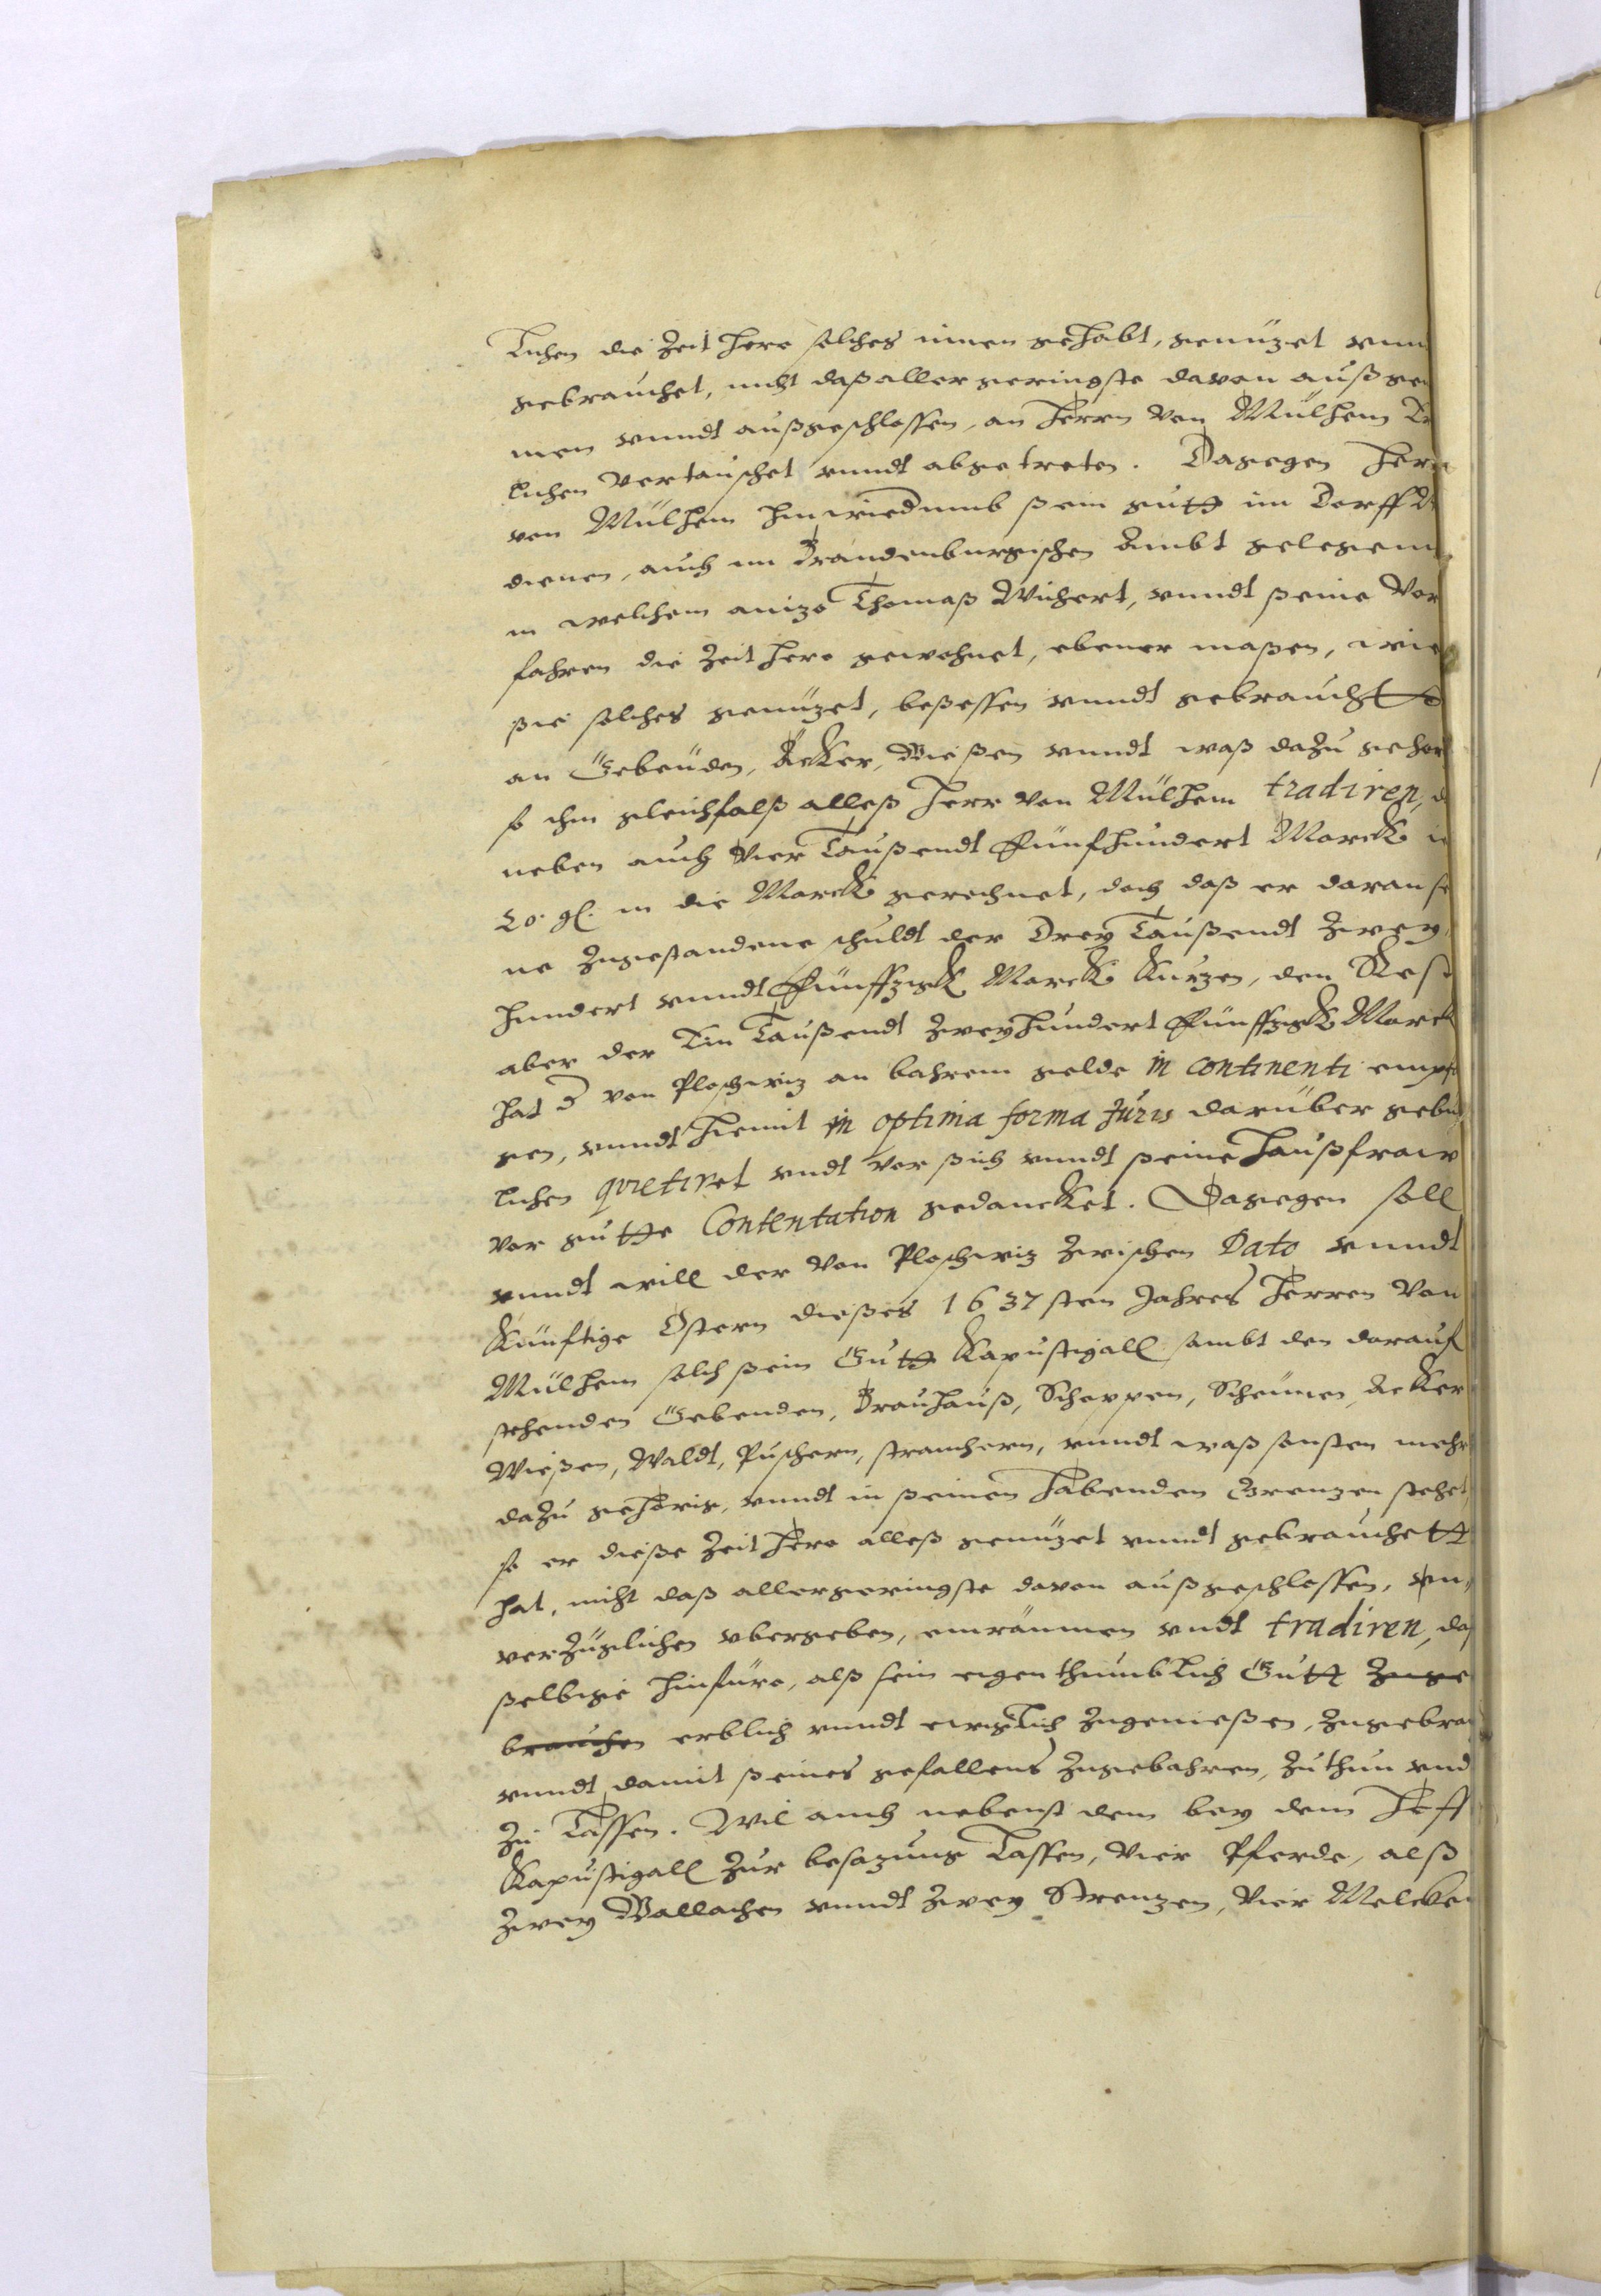 Lichen die Zeit hero solches innen gehabt, genützet unn
gebrauchet, nicht daß aller geringste davon außge
men unndt außgeschlossen, an Herrn von Mülhem
lichen vertauschet unndt abgetreten. Dagegen Herr
von Mülhem hinwiedumb sein gutt im Dorff
dienen, auch im Brandenburgischen Ambt gelegenn
in welchem anizo Thomaß Wichert, unndt seine Vor
fahren die Zeit hero gewohnet, ebener maßen, wie
sie solches genützet, beßessen unndt gebraucht
an Gebeüden, Äcker, Wießen unndt waß dazu gehor
so ihm gleichfalß alleß Herr von Mülhem tradiren,
neben auch Vier Taußendt Fünfhundert Marck
20. gl. in die Marck gerechnet, doch daß er daran se
ne zugestandene schuldt der Drey Taußendt Zwey
hundert unndt Fünffzigk Marck Kürzen, den Rest
aber der Ein Taußendt Zweyhundert Fünffzigk Marck
hat d von Ploschwiz an bahrem gelde in continenti empf
gen, unndt hiemit in optima forma Juris darüber gebü
lichen qvietiret undt vor sich unndt seine Haußfraw
vor gutte Contentation gedancket. Dagegen soll
unndt will der von Ploschwiz zwischen Dato unndt
Künftige Ostern dießes 1637sten Jahres Herren von
Mülhem solch sein Gutt Kapustigall sambt den darauf
stehenden Gebeuden, Brauhauß, Schoppen, Scheünen, Äcker
Wießen, Waldt, Püschern, strauchern, unndt waß sonsten mehr
dazu gehörig, unndt in seinen habenden Grenzen stehet,
so er dieße Zeit hero alleß genützet unndt gebrauchett
hat, nicht daß allergeringste davon außgeschlossen, un
verzüglichen ubergeben, einräumen undt tradiren, daß
selbige hinfüro, alß sein eigenthumblich Gutt zuge
brauchen erblich unndt ewiglich zugenießen, zugebrau
unndt damit seines gefallens zugebahren, zu thun und
zu Lassen. Wil auch nebenst dem bey dem Hoff
Kapustigall zur besazung Lassen, Vier Pferde, alß
zwey Wallachen unndt zwey Strenzen, Vier Melcke